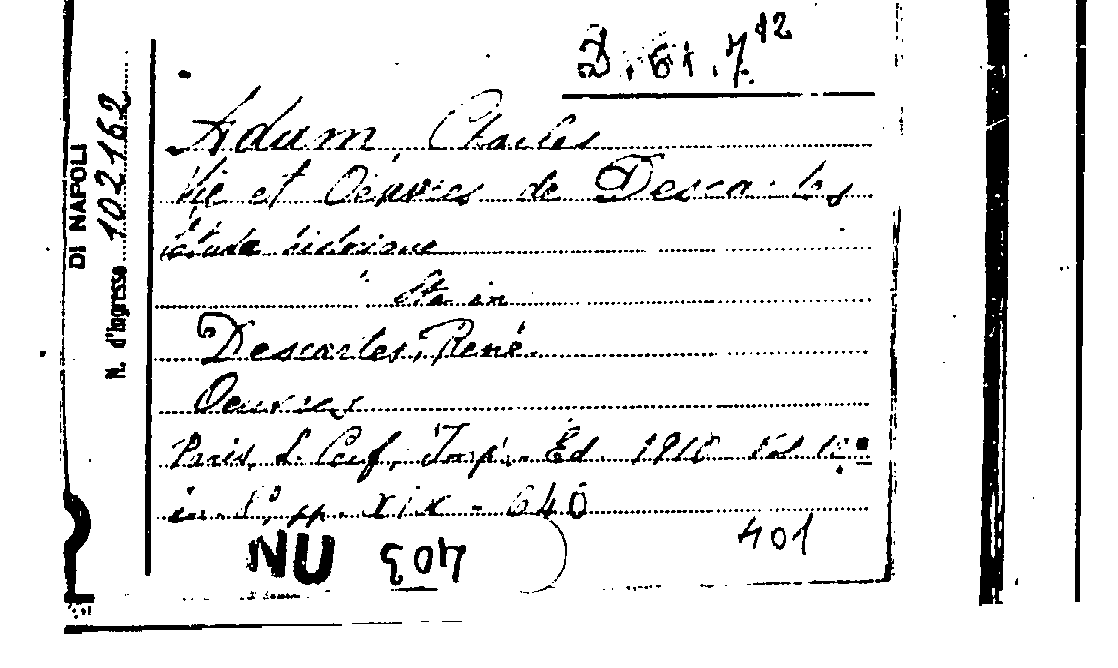 D. 61.7.12
Adam, Charles
Vie et Oeuvres de Descartes
Étude historique
Sta in
Descartes, René
Oeuvres
Paris, L. Cerf, Imp. Ed. 1910 Vol
in 8°, pp. XIX - 640
401
NU 403
DI NAPOLI
N. d'Ingresso 102162